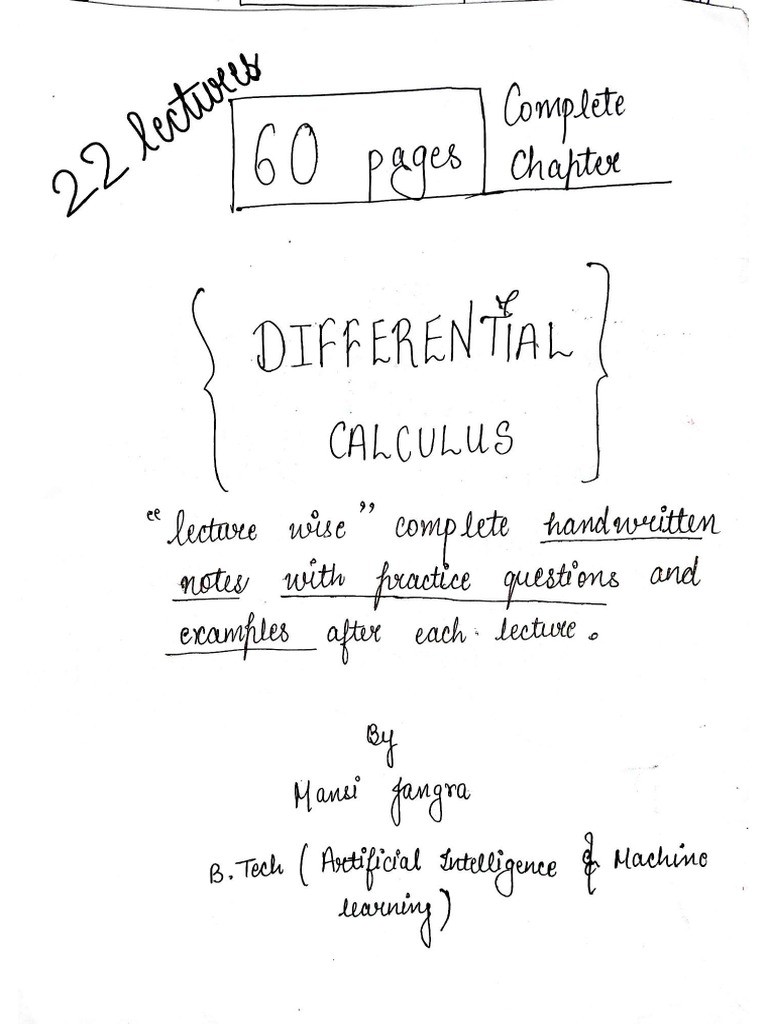 22 lectures
60 pages
Complete
Chapter
DIFFERENTIAL
CALCULUS
"lecture wise" complete handwritten
notes with practice questions and
examples after each lecture.
By
Mansi Jangra
B. Tech ( Artificial Intelligence & Machine
learning)